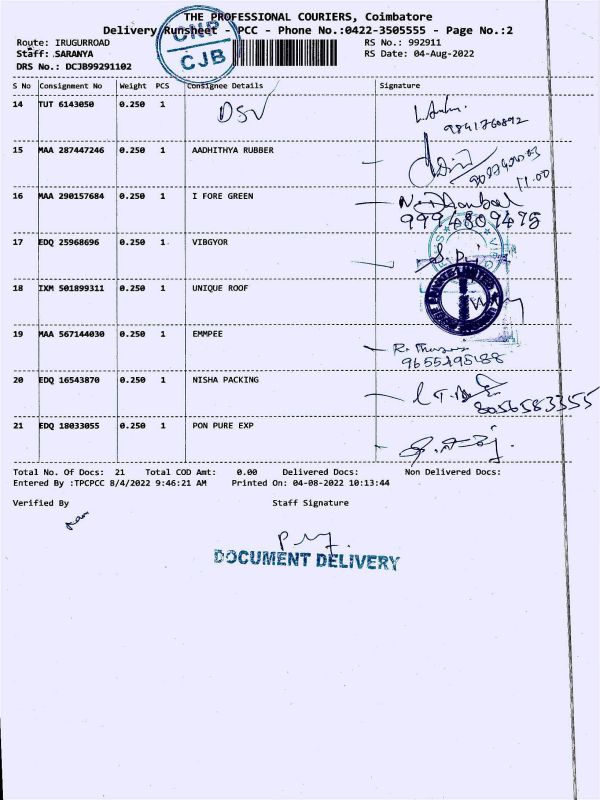 THE PROFESSIONAL COURIERS, Coimbatore
Delivery Runsheet - PCC - Phone No.:0422-3505555 - Page No.:2
Route: IRUGURROAD RS No.: 992911
Staff: SARANYA RS Date: 04-Aug-2022
DRS No.: DCJB99291102
CNP
CJB
S No Consignment No Weight PCS Consignee Details Signature
14 TUT 6143050 0.250 1 DSV
9841760892
15 MAA 287447246 0.250 1 AADHITHYA RUBBER
11.00
16 MAA 290157684 0.250 1 I FORE GREEN
9994809475
17 EDQ 25968696 0.250 1 VIBGYOR
18 IXM 501899311 0.250 1 UNIQUE ROOF
19 MAA 567144030 0.250 1 EMMPEE
9655795188
20 EDQ 16543870 0.250 1 NISHA PACKING
8056583355
21 EDQ 18033055 0.250 1 PON PURE EXP
Total No. Of Docs: 21 Total COD Amt: 0.00 Delivered Docs: Non Delivered Docs:
Entered By :TPCPCC 8/4/2022 9:46:21 AM Printed On: 04-08-2022 10:13:44
Verified By Staff Signature
DOCUMENT DELIVERY